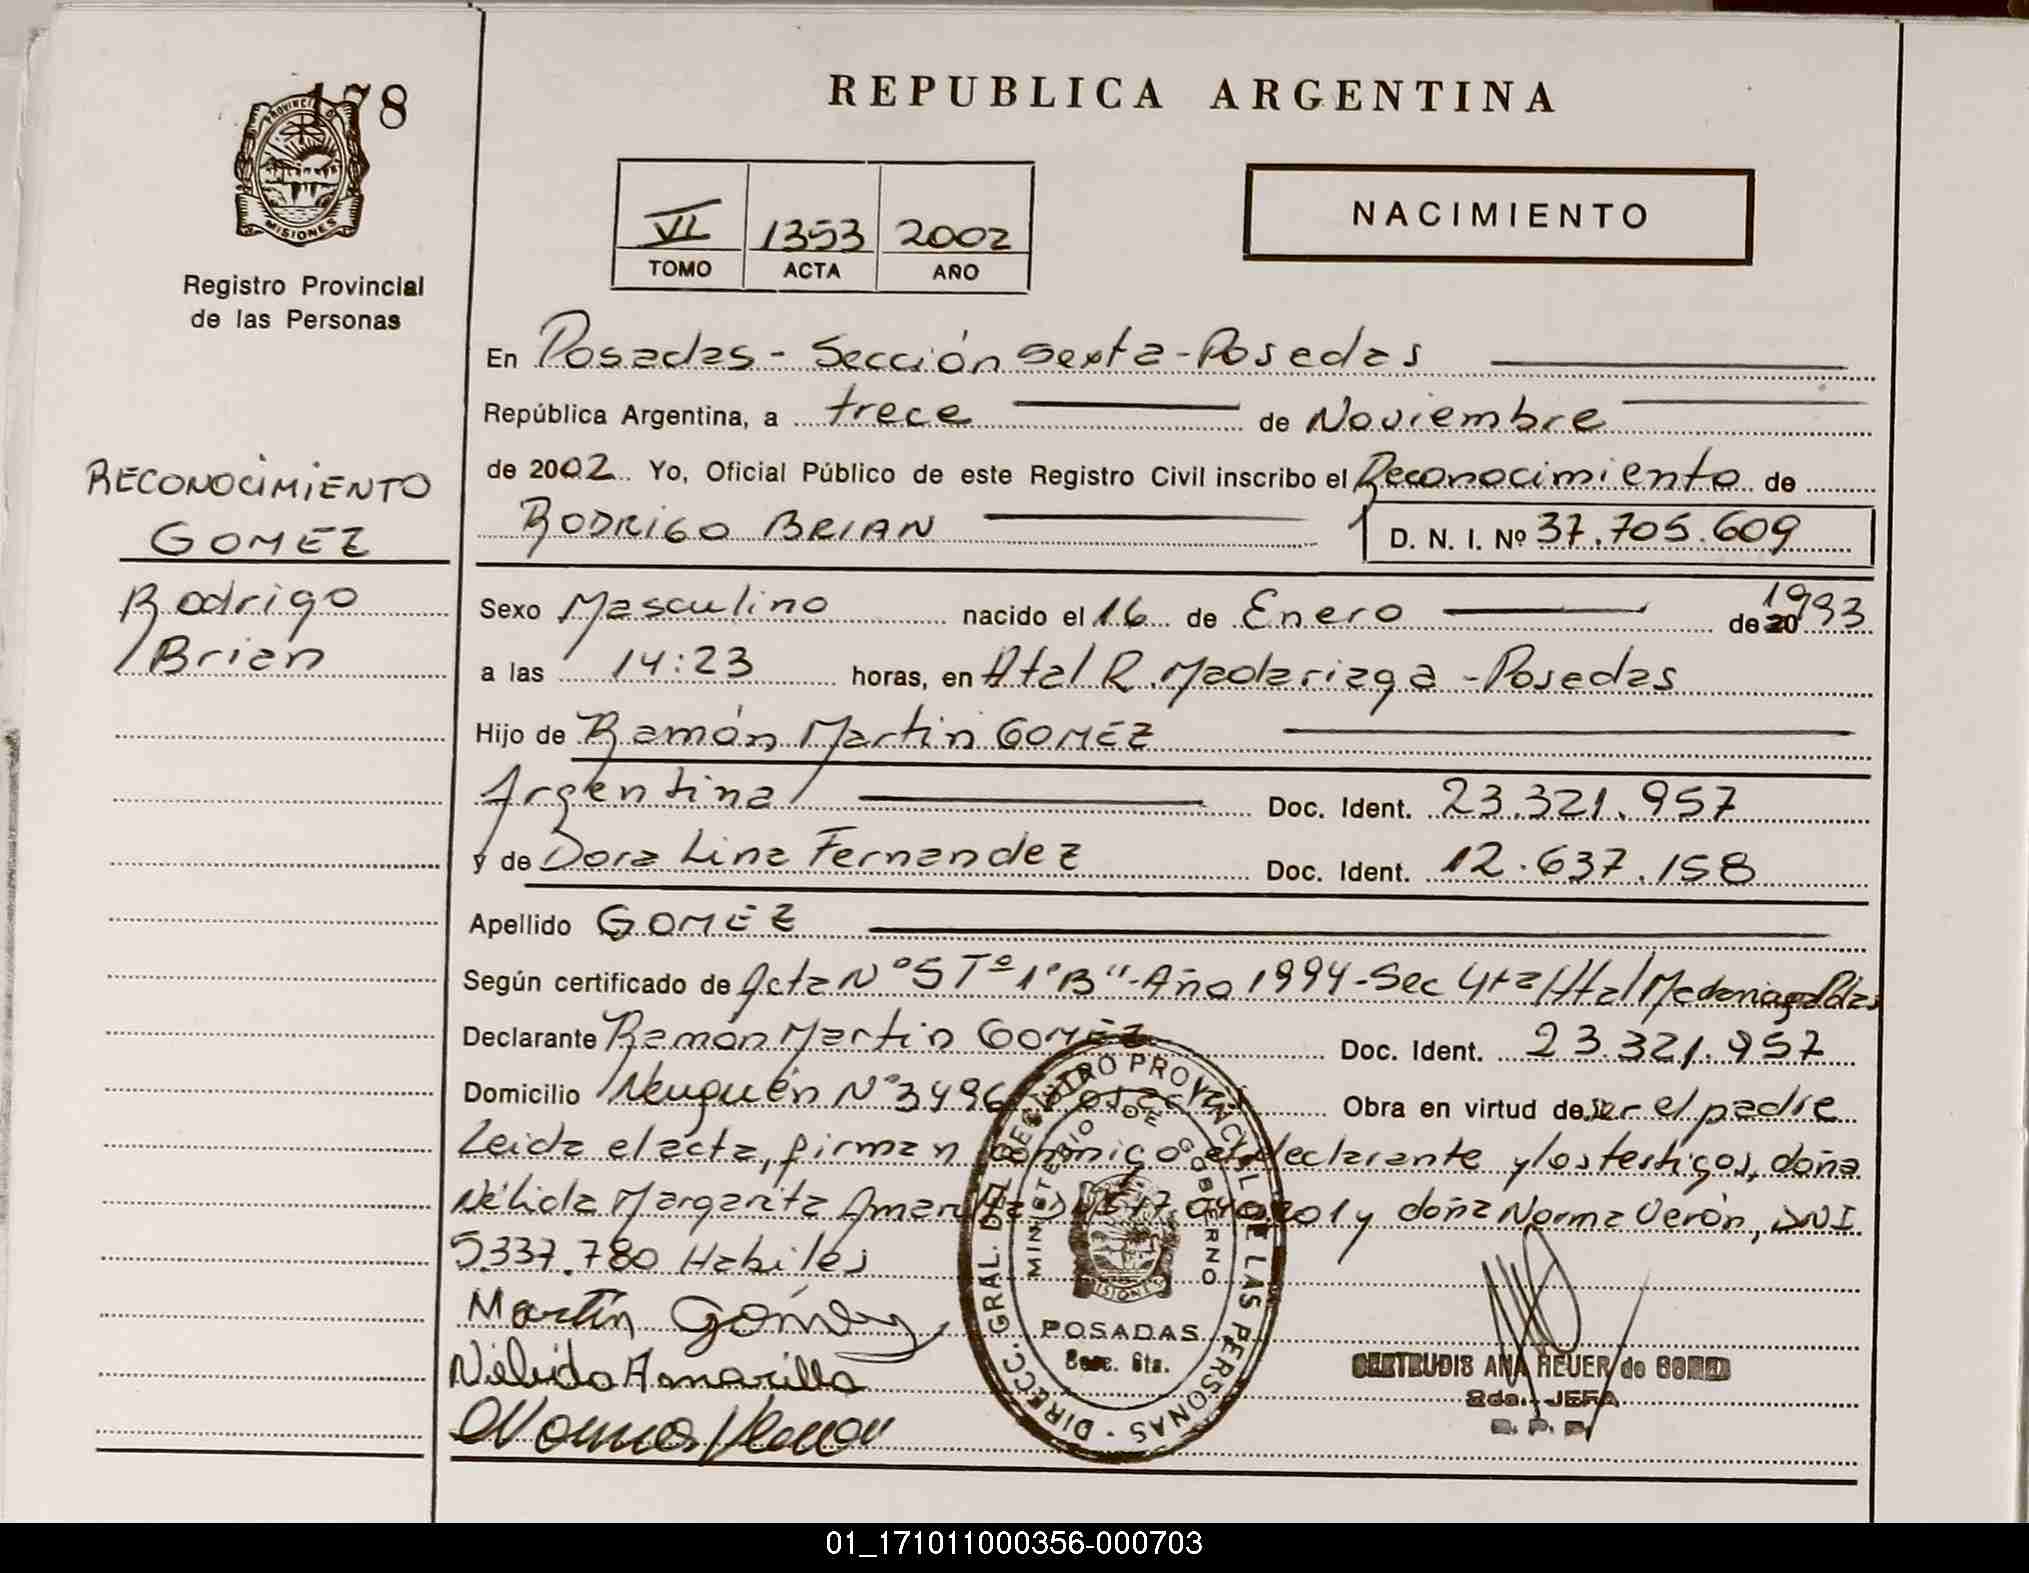 178
PROVINCIA D
MISIONES
Registro Provincial
de las Personas
RECONOCIMIENTO
GOMEZ
Rodrigo
Brian
REPUBLICA ARGENTINA
VI 1353 2002
TOMO ACTA AÑO
NACIMIENTO
En Posadas - Sección Sexta - Posadas
República Argentina, a trece de Noviembre
de 2002. Yo, Oficial Público de este Registro Civil inscribo el Reconocimiento de
RODRIGO BRIAN D. N. I. Nº 37.705.609
Sexo Masculino nacido el 16 de Enero de 20 1993
a las 14:23 horas, en Htal R. Madariaga - Posadas
Hijo de Ramón Martin GOMEZ
Argentina Doc. Ident. 23.321.957
y de Dora Lina Fernandez Doc. Ident. 12.637.158
Apellido GOMEZ
Según certificado de Acta Nº 5 Tº 1º "B" - Año 1994 - Sec 4ta Htal Madariaga Pdas
Declarante Ramón Martin GOMEZ Doc. Ident. 23.321.957
Domicilio Neuquén Nº 3496 Posadas Obra en virtud de ser el padre
Leida el acta, firman conmigo el declarante y los testigos, doña
Nélida Margarita Amarilla y doña Norma Verón, DNI
5.337.780 Habiles
Martín Gómez
Nélida Amarilla
Norma Veron
DIRECC. GRAL. DEL REGISTRO PROVINCIAL DE LAS PERSONAS
MINISTERIO DE GOBIERNO
MISIONES
POSADAS
Secc. 6ta.
GERTRUDIS ANA HEUER de
2da. JEFA
R. P. P.
01_171011000356-000703